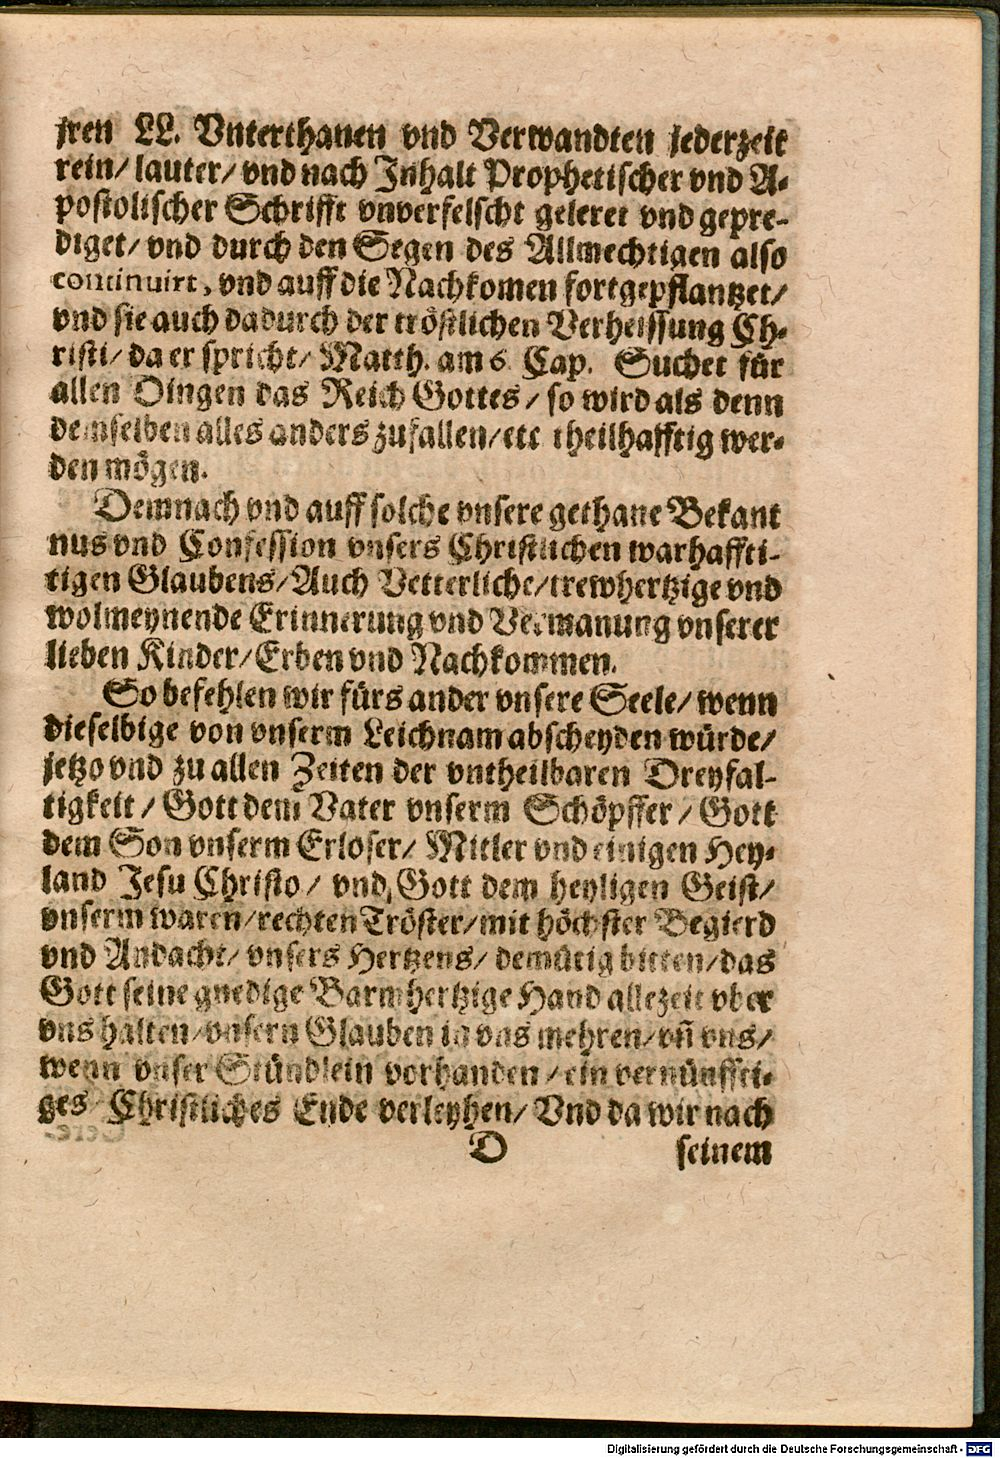 jren LL. Vnterthanen vnd Verwandten jederzeit
rein/ lauter/ vnd nach Inhalt Prophetischer vnd A-
postolischer Schrifft vnverfelscht geleret vnd gepre-
diget/ vnd durch den Segen des Allmechtigen also
continuirt, vnd auff die Nachkomen fortgepflantzet/
vnd sie auch dadurch der tröstlichen Verheissung Ch-
risti/ da er spricht/ Matth. am 6. Cap. Suchet für
allen Dingen das Reich Gottes/ so wird als denn
demselben alles anders zufallen/ etc theilhafftig wer-
den mögen.
Demnach vnd auff solche vnsere gethane Bekant
nus vnd Confession vnsers Christlichen warhaffti-
tigen Glaubens/ Auch Vetterliche/ trewhertzige vnd
wolmeynende Erinnerung vnd Vermanung vnserer
lieben Kinder/ Erben vnd Nachkommen.
So befehlen wir fürs ander vnsere Seele/ wenn
dieselbige von vnserm Leichnam abscheyden würde/
jetzo vnd zu allen Zeiten der vntheilbaren Dreyfal-
tigkeit/ Gott dem Vater vnserm Schöpffer/ Gott
dem Son vnserm Erloser/ Mitler vnd einigen Hey-
land Jesu Christo/ vnd, Gott dem heyligen Geist/
vnserm waren/ rechten Tröster/ mit höchster Begierd
vnd Andacht/ vnsers Hertzens/ demütig bitten/ das
Gott seine gnedige Barmhertzige Hand allezeit vber
vns halten/ vnsern Glauben in vns mehren/ vñ vns/
wenn vnser Stündlein vorhanden/ ein vernünffti-
ges Christliches Ende verleyhen/ Vnd da wir nach
D seinem
Digitalisierung gefördert durch die Deutsche Forschungsgemeinschaft - DFG